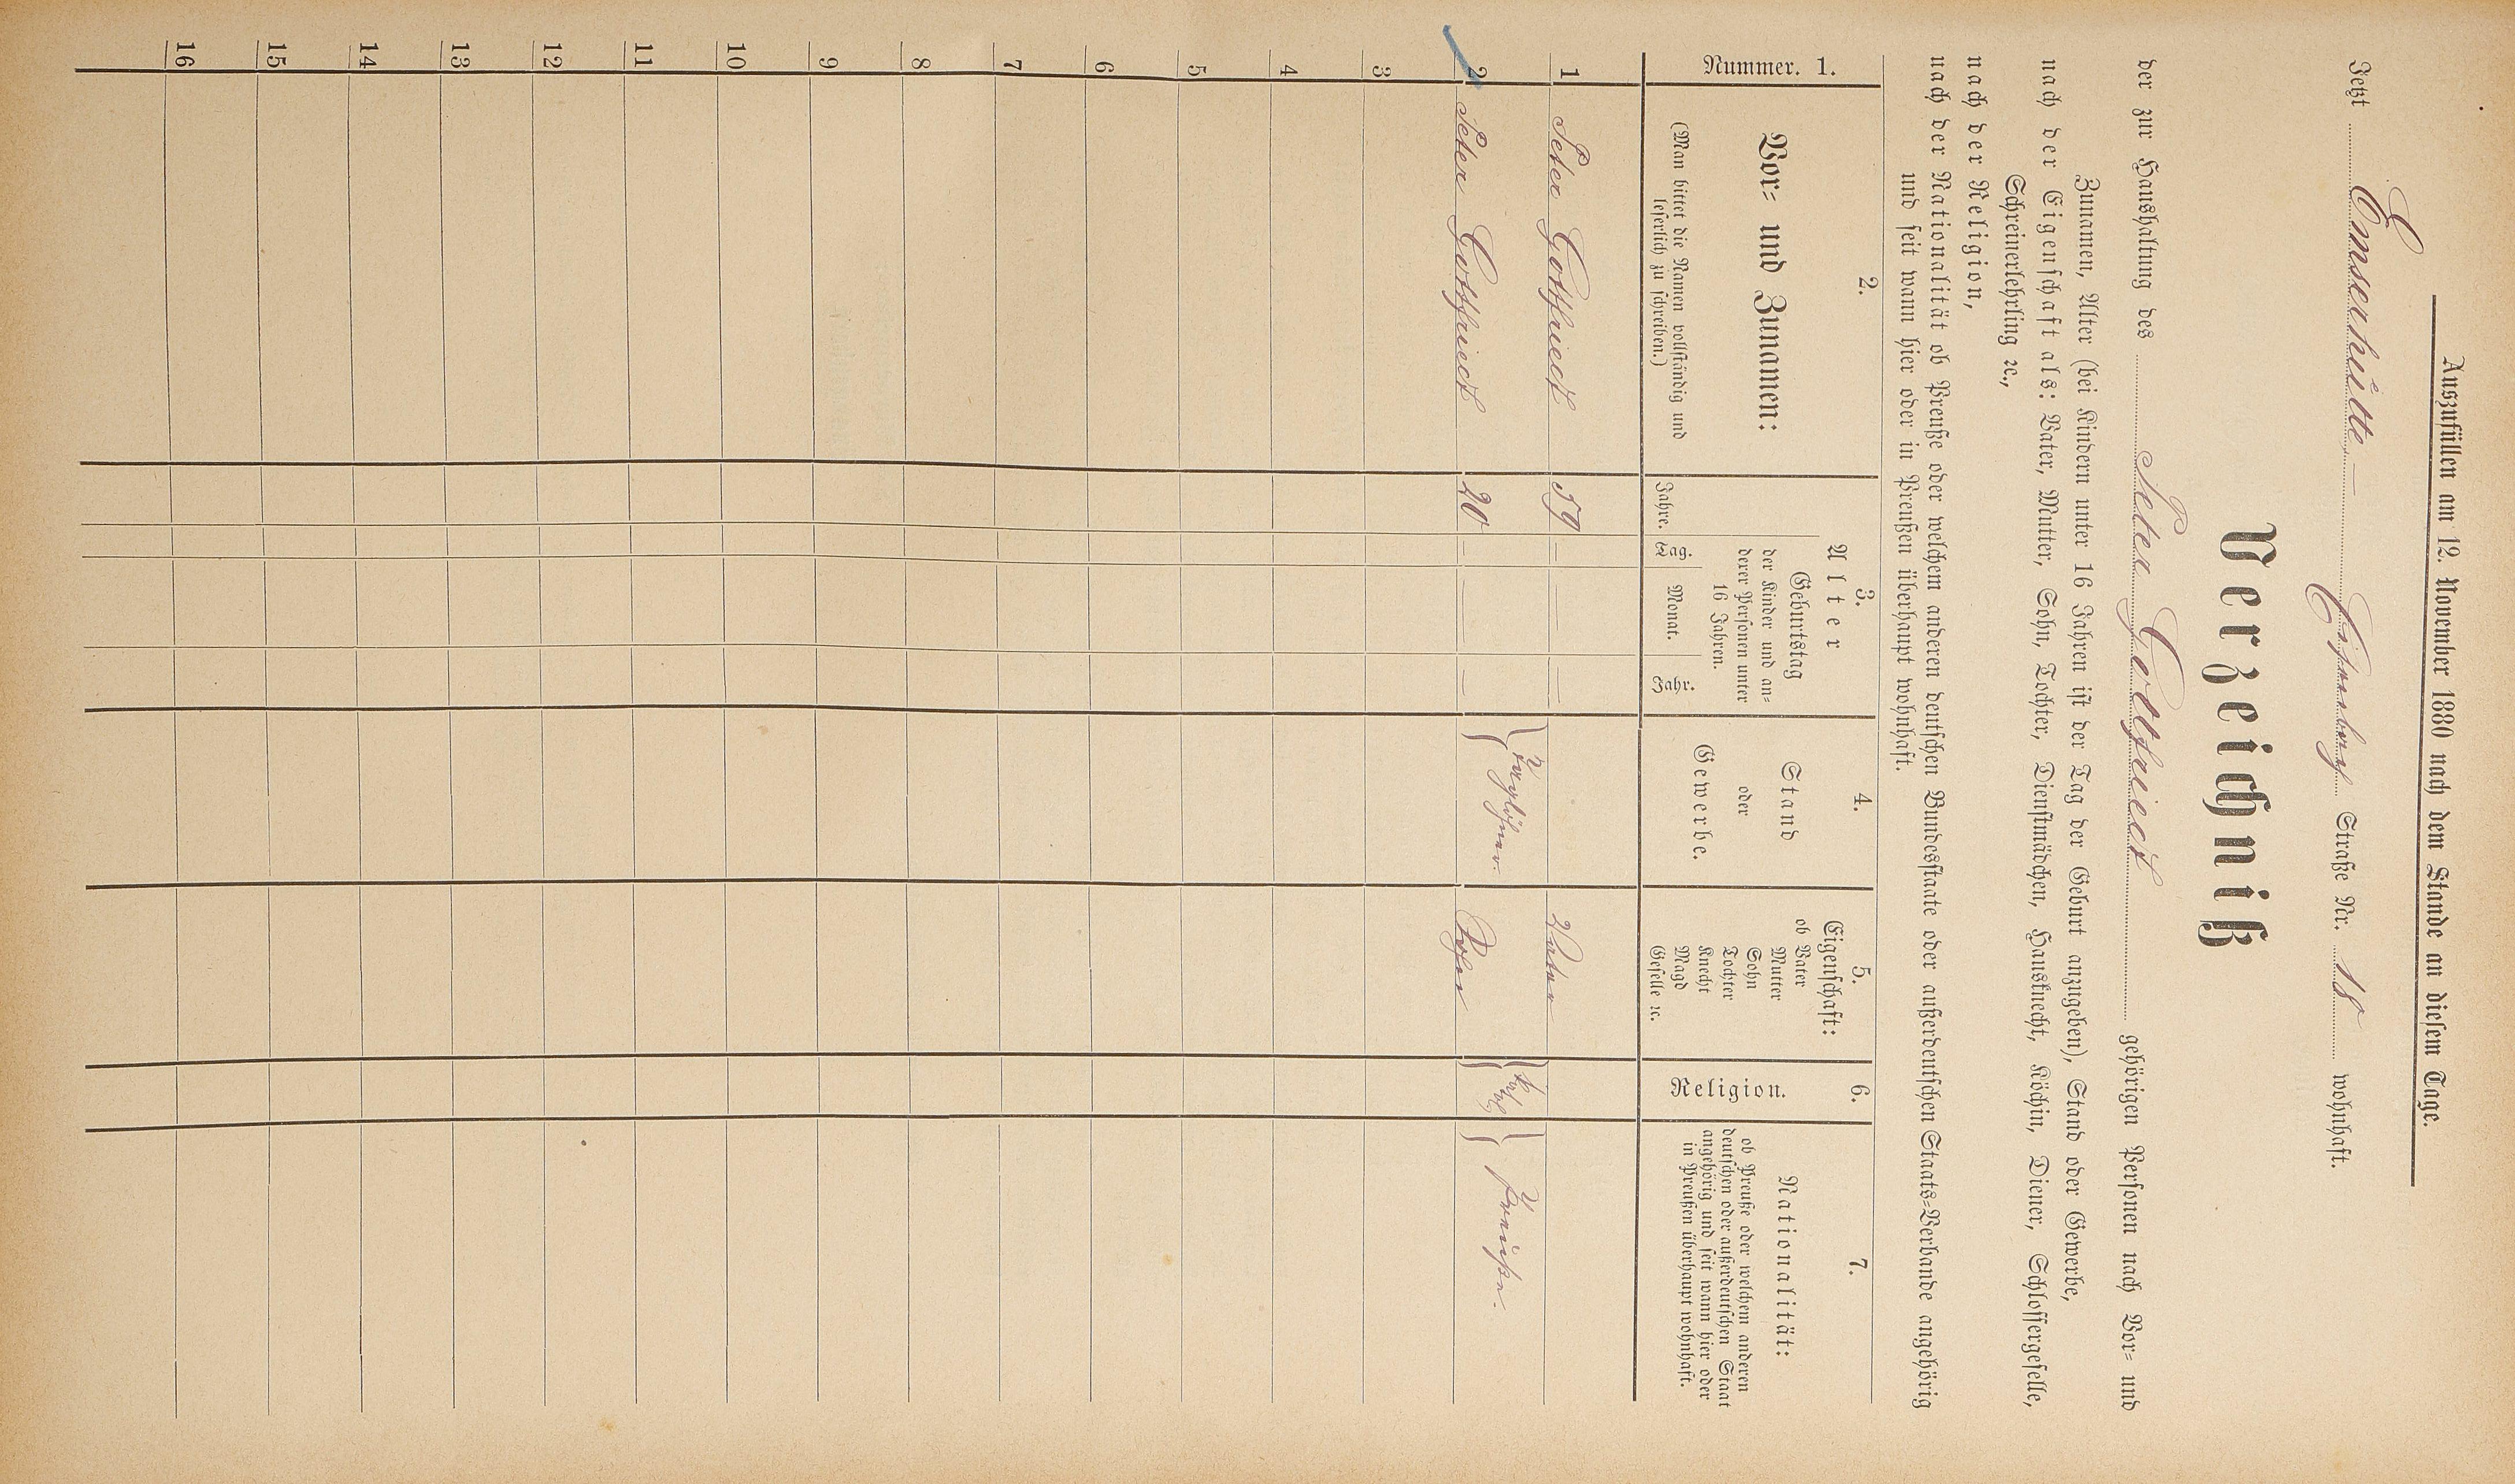 Auszufüllen am 12. November 1880 nach dem Stande an diesem Tage.
Jetzt Emserhütte, – Straße Nr. 18 wohnhaft.
Verzeichniß
der zur Haushaltung des Peter Gottfried gehörigen Personen nach Vor- und
Zunamen, Alter (bei Kindern unter 16 Jahren ist der Tag der Geburt anzugeben), Stand oder Gewerbe,
nach der Eigenschaft als: Vater, Mutter, Sohn, Tochter, Dienstmädchen, Hausknecht, Köchin, Diener, Schlossergeselle,
Schreinerlehrling ꝛc.,
nach der Religion,
nach der Nationalität ob Preuße oder welchem anderen deutschen Bundesstaate oder außerdeutschen Staats-Verbande angehörig
und seit wann hier oder in Preußen überhaupt wohnhaft.
Nummer. 1.
2.
Vor- und Zunamen:
(Man bittet die Namen vollständig und
leserlich zu schreiben.)
3.
Alter
Jahre.
Geburtstag
der Kinder und an-
derer Personen unter
16 Jahren.
Tag. Monat. Jahr.
4.
Stand
oder
Gewerbe.
5.
Eigenschaft:
ob Vater
Mutter
Sohn
Tochter
Knecht
Magd
Geselle ꝛc.
6.
Religion.
7.
Nationalität:
ob Preuße oder welchem anderen
deutschen oder außerdeutschen Staat
angehörig und seit wann hier oder
in Preußen überhaupt wohnhaft.
1 Peter Gottfried 59 – – – Vater
} Taglöhner. } Kathol. } Preuße.
2 Peter Gottfried 20 – – – Sohn
3
4
5
6
7
8
9
10
11
12
13
14
15
16